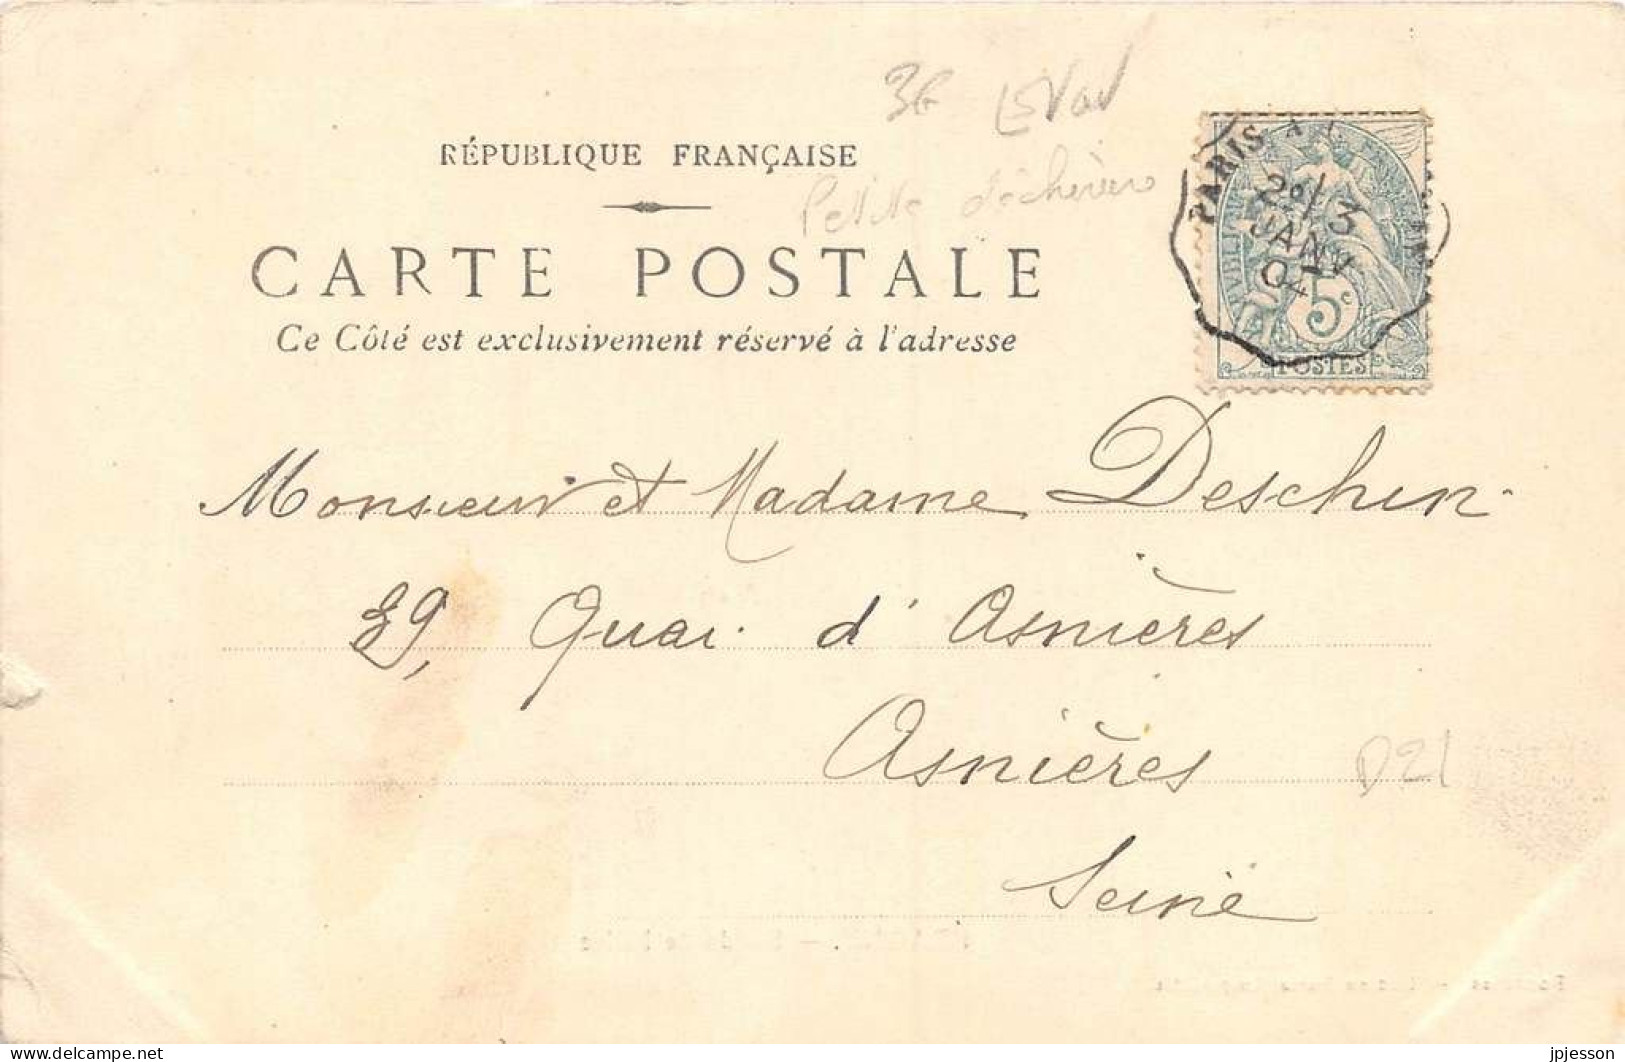 36 Levav
RÉPUBLIQUE FRANÇAISE
Petite déchirure
CARTE POSTALE
Ce Côté est exclusivement réservé à l'adresse
PARIS A
2º/ 3
JANV
04
5c
POSTES
Monsieur et Madame Deschen
39, Quai d'Asnières
Asnières
D21
Seine
delcampe.net
jpjesson